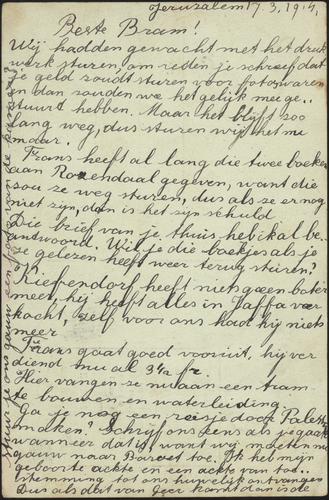 Jeruzalem 17.3.1914.
Beste Bram!
Wij hadden gewacht met het druk
werk sturen om reden je schreef dat
je geld zoudt sturen voor fotowaren
en dan zouden we het gelijk meege..
stuurt hebben. Maar het blijft zoo
lang weg, dus sturen wij het nu
maar.
Frans heeft al lang die twee boeken
aan Rozendaal gegeven, want die
zou ze weg sturen, dus als ze er nog
niet zijn, dan is het zijn schuld
Die brief van je thuis heb ik al be
antwoord. Wil je die boekjes als je
ze gelezen heeft weer terug sturen?
Kieffendorf heeft niets geen boter
meer, hij heeft alles in Jaffa ver
kocht, zelf voor ons had hij niets
meer
Frans gaat goed vooruit, hij ver
diend nu al 3¼ fr.
Hier vangen ze nu aan een tram
te bouwen en waterleiding.
Ga je nog een reisje door Palest.
maken? Schrijf ons eens als je gaat
wanneer dat is, want wij moeten nu
gauw naar toe. Ik heb mijn
geboorte ackte en een ackte van toe..
stemming tot ons huwelijk ontvangen
Dus als dat van Geer kand dan zo de
Stuur je ons gauw een foto van de